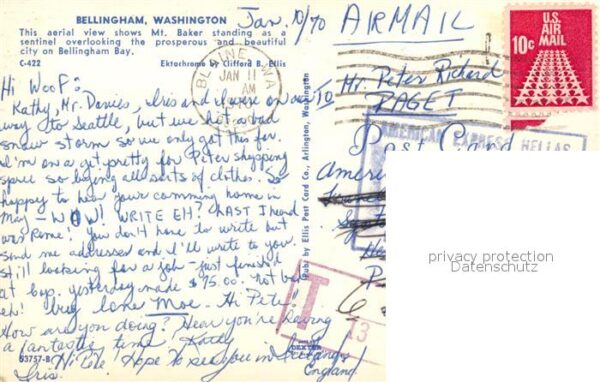 BELLINGHAM, WASHINGTON
This aerial view shows Mt. Baker standing as a
sentinel overlooking the prosperous and beautiful
city on Bellingham Bay.
C-422 Ektachrome by Clifford B. Ellis
Jan. 10/70
AIRMAIL
Hi Woof:
Kathy, Mr. Davies, Iris and I were on our
way to Seattle, but we hit a bad
snow storm so we only got this far.
I'm on a get pretty for Peter shopping
spree so buying all sorts of clothes. So
happy to hear your comming home in
May - WOW! WRITE EH? LAST I heard
was Rome! You don't have to write but
send me addresses and I'll write to you.
Still looking for a job - just finished
at bay. yesterday made $75.00 - not bad
eh! love Moe - Hi Pete!
How are you doing? Hear you're having
a fantastic time Kathy
Hi Pete Hope to see you in
England
Iris
53757-B
BLAINE, WA
JAN 11
AM
Pub. by Ellis Post Card Co., Arlington, Washington
DEXTER
U.S.
AIR
MAIL
10c
TO Mr. Peter Richard
PAGET
Post Card
AMERICAN EXPRESS HELLAS
T
13
privacy protection
Datenschutz